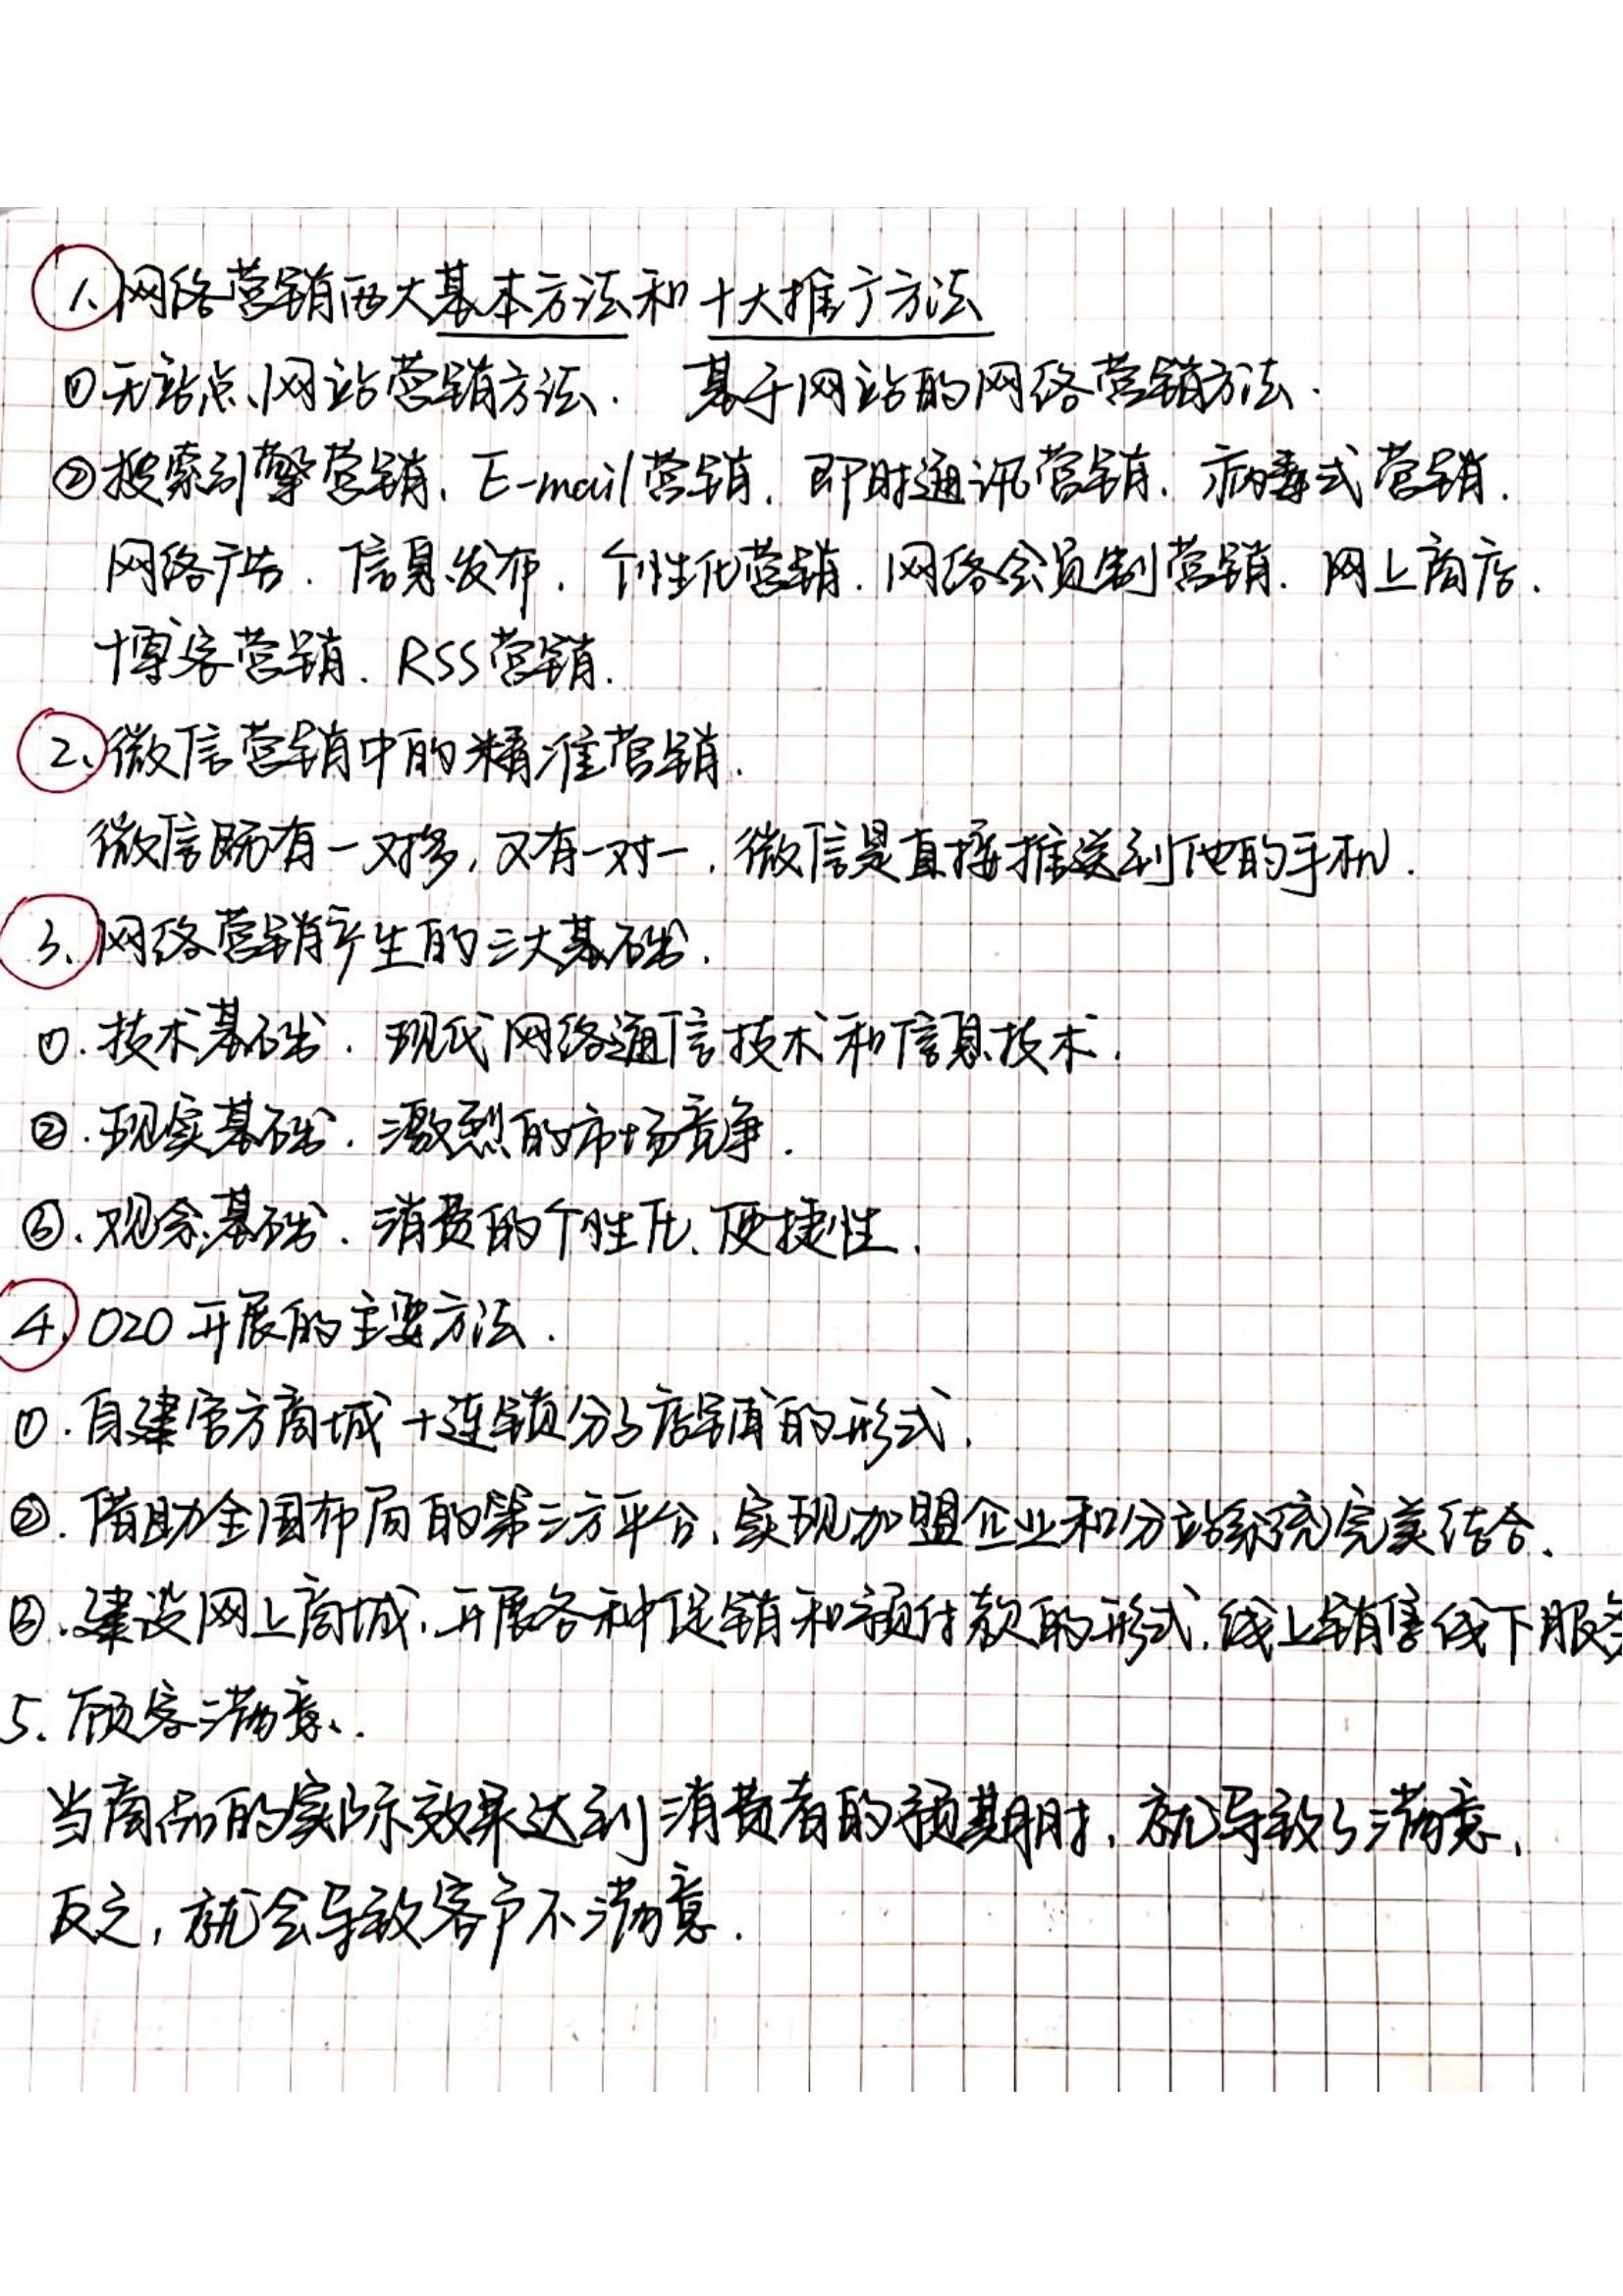 1、网络营销两大基本方法和十大推广方法
①无站点网站营销方法. 基于网站的网络营销方法.
②搜索引擎营销、E-mail营销. 即时通讯营销. 病毒式营销.
网络广告. 信息发布. 个性化营销. 网络会员制营销. 网上商店.
博客营销. RSS营销.
2、微信营销中的精准营销.
微信既有一对多,又有一对一. 微信是直接推送到他的手机.
3、网络营销产生的三大基础.
①.技术基础. 现代网络通信技术和信息技术.
②.现实基础. 激烈的市场竞争.
③.观念基础. 消费的个性化、便捷性.
4、O2O开展的主要方法.
①.自建官方商城+连锁分子店铺的形式.
②.借助全国布局的第三方平台、实现加盟企业和分站系统完美结合.
③.建设网上商城、开展各种促销和预付款的形式.线上销售线下服务
5.顾客满意.
当商品的实际效果达到消费者的预期时、就导致了满意,
反之,就会导致客户不满意.